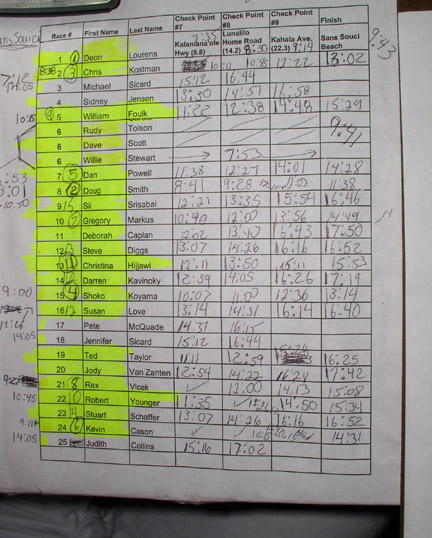 Race # First Name Last Name Check Point #7 Kalaniana'ole Hwy (8.8) Check Point #8 Lunalilo Home Road (14.2) Check Point #9 Kahala Ave. (22.3) Finish Sans Souci Beach
7:35 8:30 9:14 9:43
1 Deon Lourens 10:11 10:45 12:22 13:02
2 Chris Kostman 15:12 16:44
3 Michael Sicard
4 Sidney Jensen 13:30 14:51 16:58
5 William Foulk 11:22 12:38 14:48 15:29
6 Rudy Tolson
6 Dave Scott 9:41
6 Willie Stewart 7:53
7 Dan Powell 11:38 12:27 14:01 14:28
8 Doug Smith 8:41 9:28 11:38
9 Sii Srisabai 12:21 13:35 15:54 16:46
10 Gregory Markus 10:40 12:00 13:56 14:49
11 Deborah Caplan 12:02 13:40 16:43 17:50
12 Steve Diggs 13:07 14:26 16:16 16:52
13 Christina Hijjawi 12:11 13:50 15:11 15:53
14 Darren Kavinoky 12:39 14:05 16:26 17:19
15 Shoko Koyama 10:07 11:00 12:36 13:14
16 Susan Love 13:14 14:31 16:14 16:40
17 Pete McQuade 14:31 16:15
18 Jennifer Sicard 15:12 16:44
19 Ted Taylor 11:11 12:59 16:25
20 Jody Van Zanten 12:54 14:22 16:21 17:42
21 Rex Vicek ✓ 12:00 14:13 15:08
22 Robert Younger 11:35 ✓ 14:50 15:34
23 Stuart Schaffer 13:07 14:26 16:16 16:52
24 Kevin Cason ✓ 14:31
25 Judith Collins 15:16 17:02